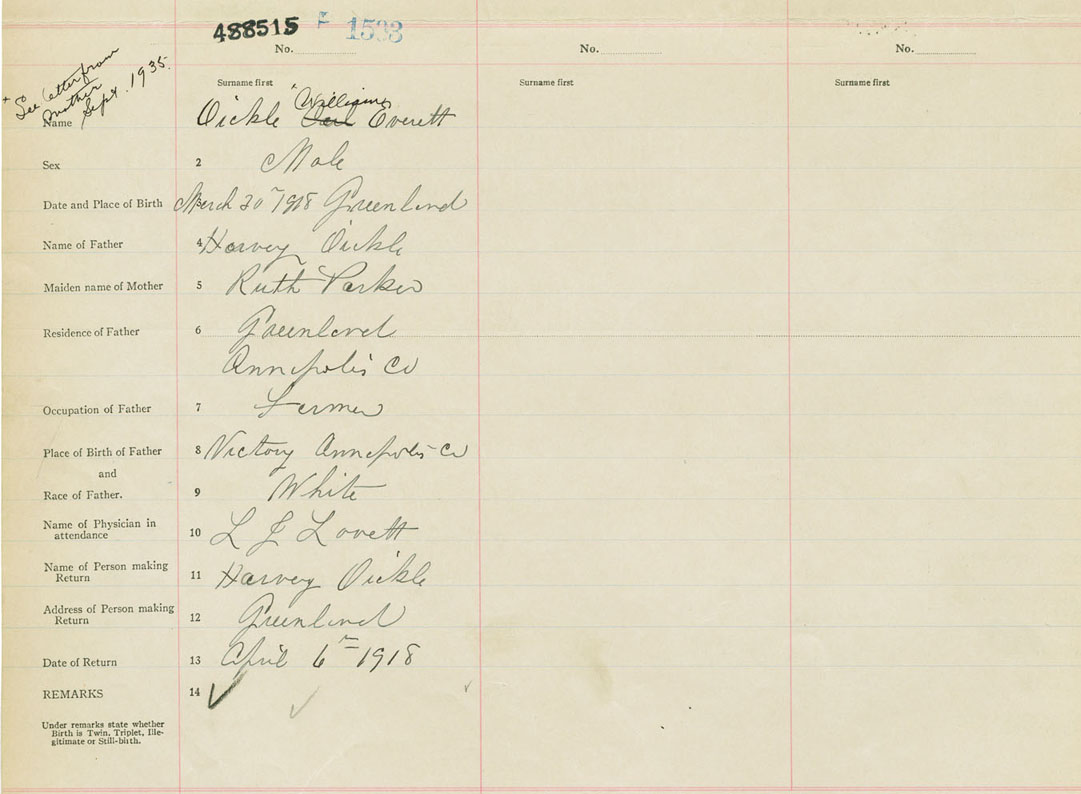 488515 F 1503
No. No. No.
* See letter from
mother
Sept. 1935.
Surname first Surname first Surname first
Name Oickle "William Everett
Sex 2 Male
Date and Place of Birth 3 March 30th 1918 Greenland
Name of Father 4 Harvey Oickle
Maiden name of Mother 5 Ruth Parker
Residence of Father 6 Greenland
Annapolis Co
Occupation of Father 7 Farmer
Place of Birth of Father 8 Victory Annapolis Co
and
Race of Father. 9 White
Name of Physician in
attendance 10 L J Lovett
Name of Person making
Return 11 Harvey Oickle
Address of Person making
Return 12 Greenland
Date of Return 13 April 6th 1918
REMARKS 14 ✓
Under remarks state whether
Birth is Twin, Triplet, Ille-
gitimate or Still-birth.